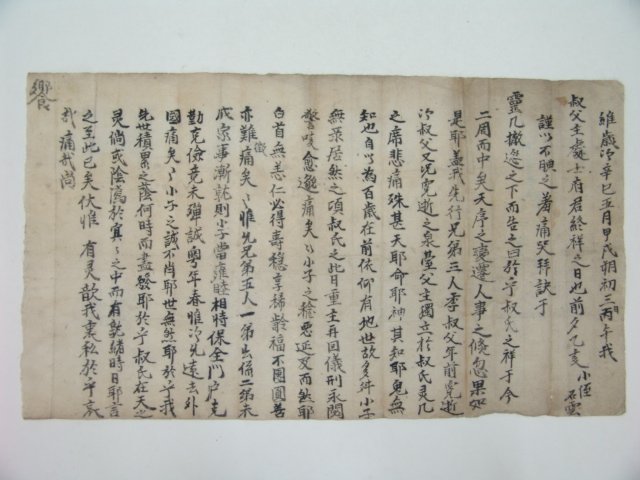 維歲次辛巳五月甲戌朔初三日丙午我
叔父主處士府君終祥之日也前夕乙亥小侄石雲
謹以不腆之著痛哭拜訣于
靈几撤筵之下而告之曰於乎叔氏之祥于今
二周而中矣天序之變遷人事之倏忽果如
是耶盖我先行兄第三人季叔父年前喪逝
今叔父又以喪逝之叔父主獨立於叔氏灵几
之席悲痛殊甚天耶命耶神其知耶鬼無
知也自以為百歲在前依何有地世故多舛小子
無所居然之頃叔氏之此日重圭再回儀刑永閟
警咳愈邈痛矣痛矣小子之罪惡延及而然耶
白首無恙仁必得壽穩享稀齡福不圓善
亦難徵痛矣痛矣惟先兄弟五人一第出係二第未
成宗事漸就則小子當雍睦相時保全門户克
勤克儉竟未殫誠粤年春惟次先遠去外
國痛矣痛矣小子之誠不肖耶世無然耶於乎我
先世積累之蔭何時而盡發耶於乎叔氏在天之
灵倘或陰隲於冥冥之中而有就緒時日耶言
之至此已矣伏惟有灵歆我衷私於乎哀
哉痛哉尚
饗